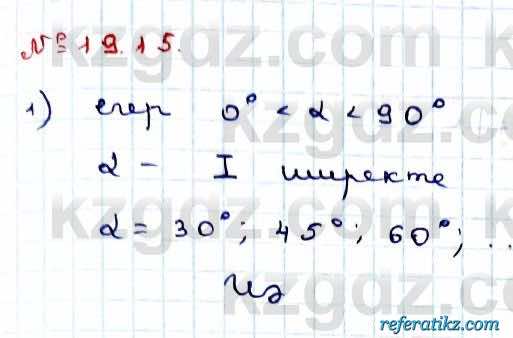 № 19.15.
1) егер 0° < α < 90°
α - I ширекте
α = 30°; 45°; 60°; ...
Иә
kzgdz.com
referatikz.com